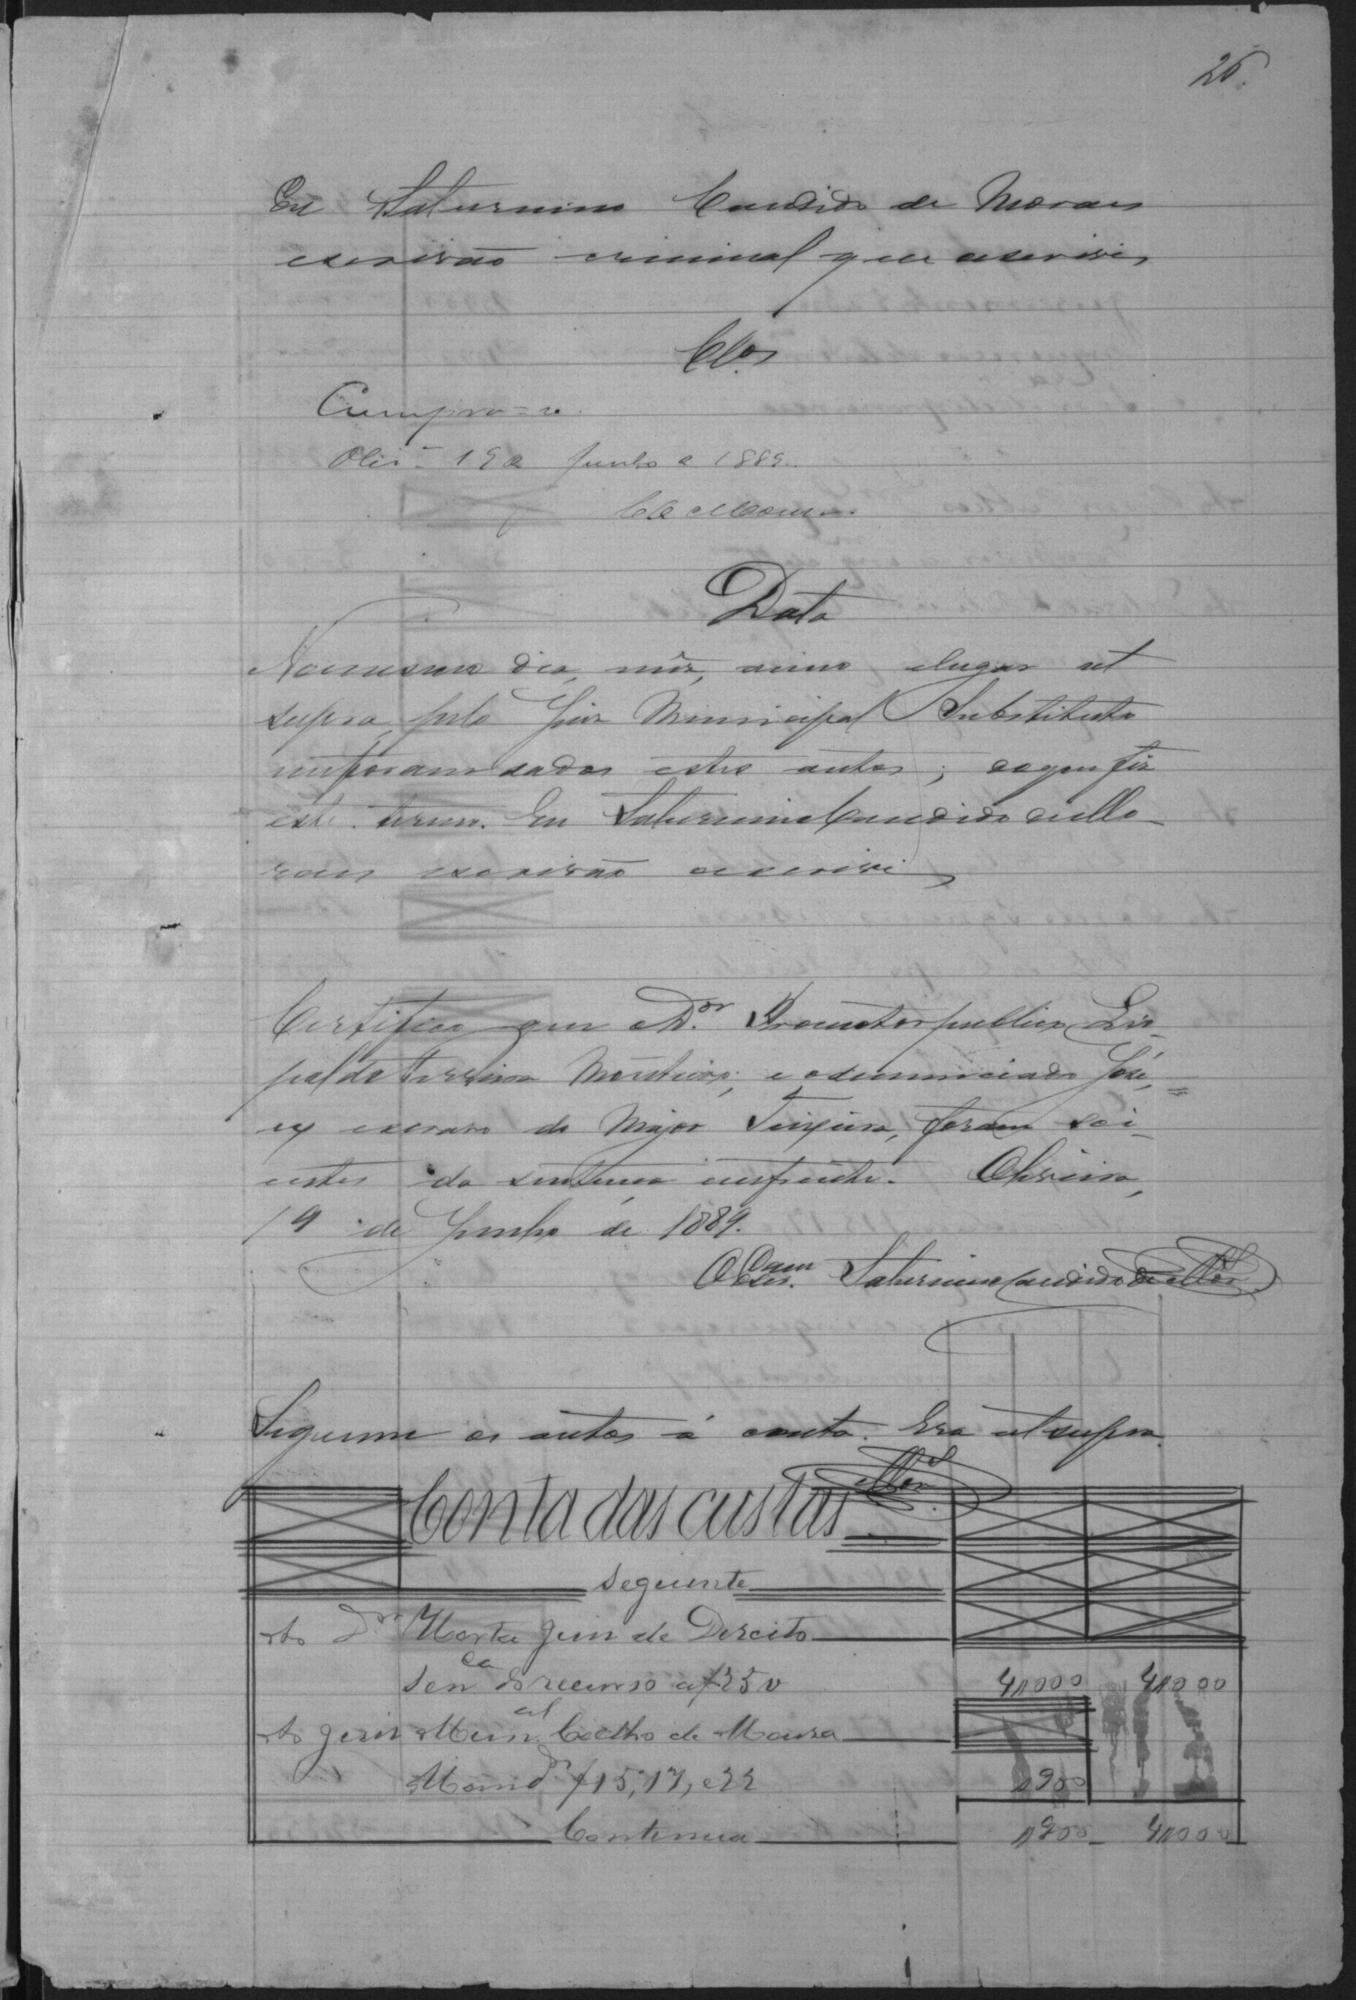 26.
Eu Saturnino Candido de Moraes
escrivão criminal que escrivi
Cl.os
Cumpra-se.
Oliv.ª 19 de Junho de 1889.
C de Moura.
Data
No mesmo dia, mês, anno e lugar ut
supra, pelo Juiz Municipal Substituto
me foram dados estes autos; do que fiz
este termo. Eu Saturnino Candido de Mo-
raes escrivão o escrivi
Certifico que o D.or Promotor publico
Ferreira e o denunciado José,
ex escravo do Major Teixeira, foram sci-
entes da sentença infronte. Oliveira,
19 de Junho de 1889.
O Escr. Saturnino Candido de Mor.
Seguem os autos á conta. Era ut supra.
Mor.s
Conta das custas
seguinte
Ao D.or Horta Juiz de Direito
Sen.ca do recurso a f 25 v 4$000 4$000
Ao Juiz Mun.al Coelho de Moura
Mand.o f 15, 17, e 22 $900
Continua $900 4$000